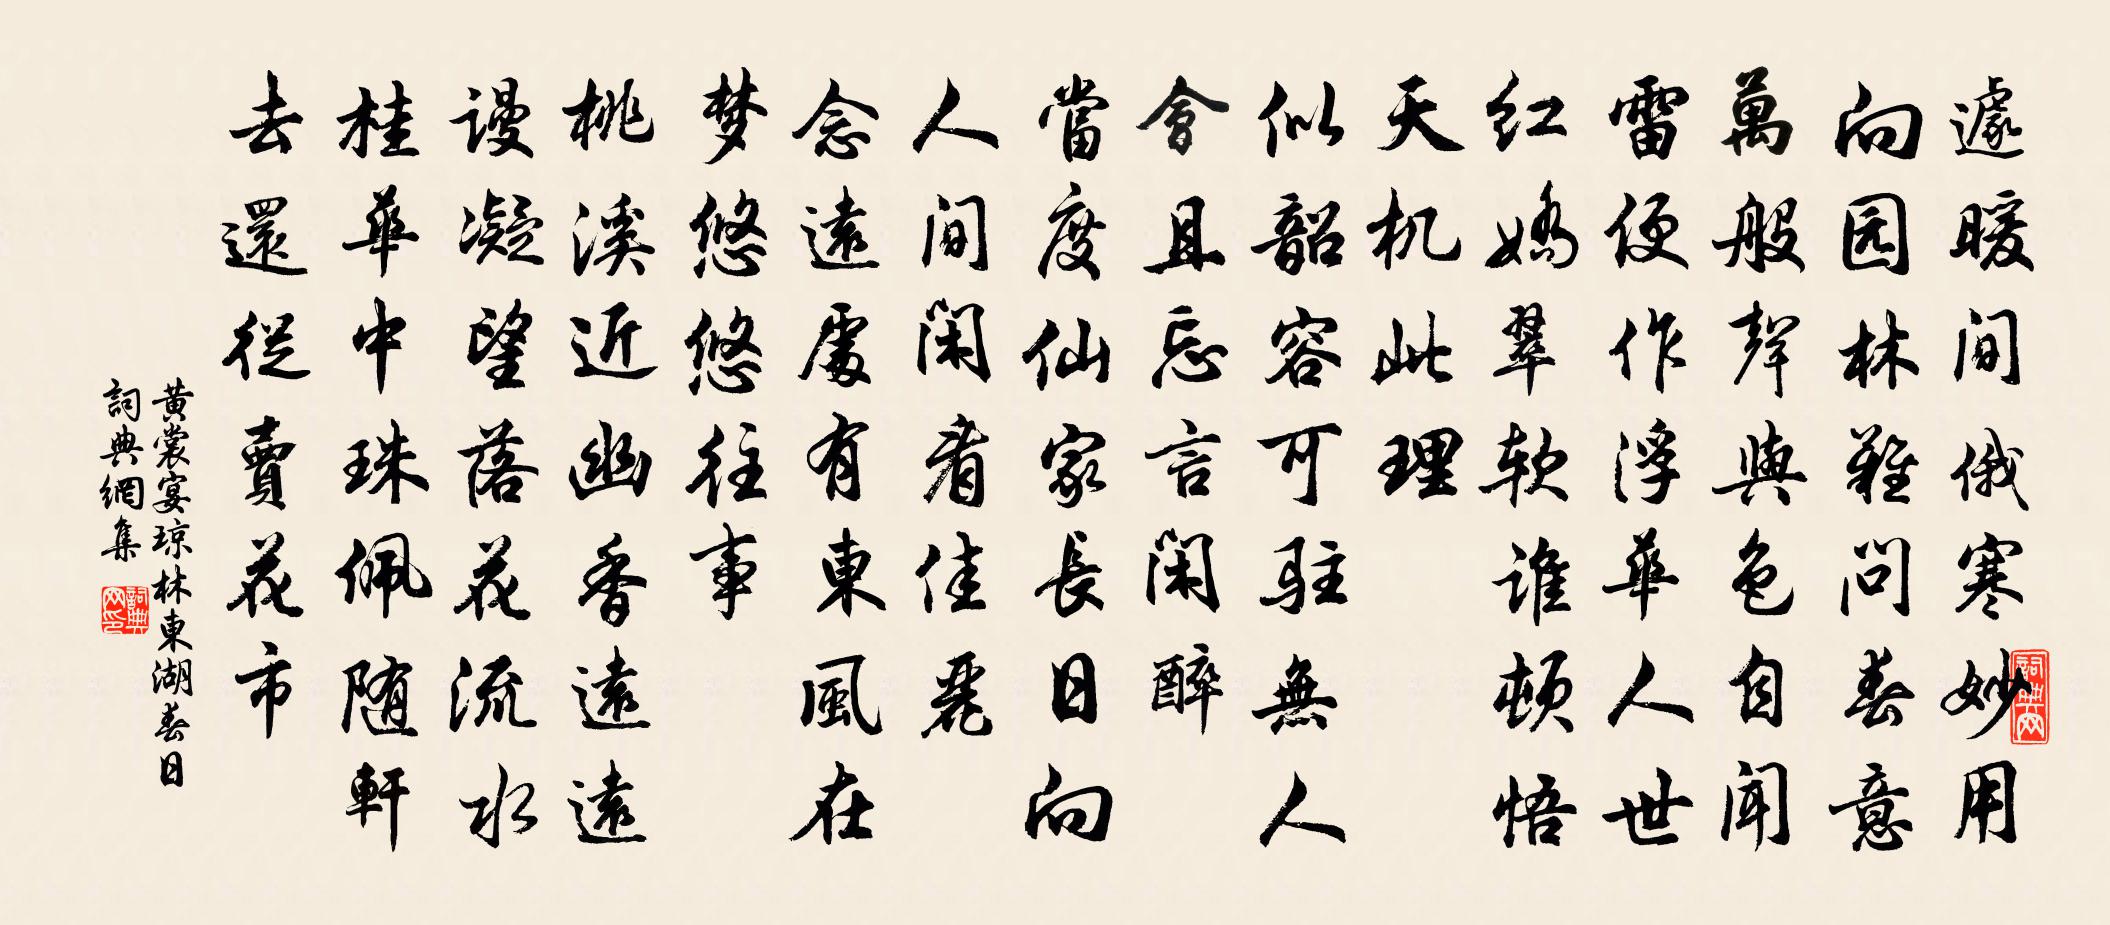 遽暖间俄寒妙用
向园林難问春意
萬般聲與色自闻
雷便作浮華人世
红嬌翠软谁顿悟
天机此理
似韶容可駐無人
會且忘言闲醉
當度仙家長日向
人间闲看佳麗
念遠處有東風在
梦悠悠往事
桃溪近幽香遠遠
谩凝望落花流水
桂華中珠佩随軒
去還從賣花市
黄裳宴琼林東湖春日
詞典網集
詞典网
詞典网印